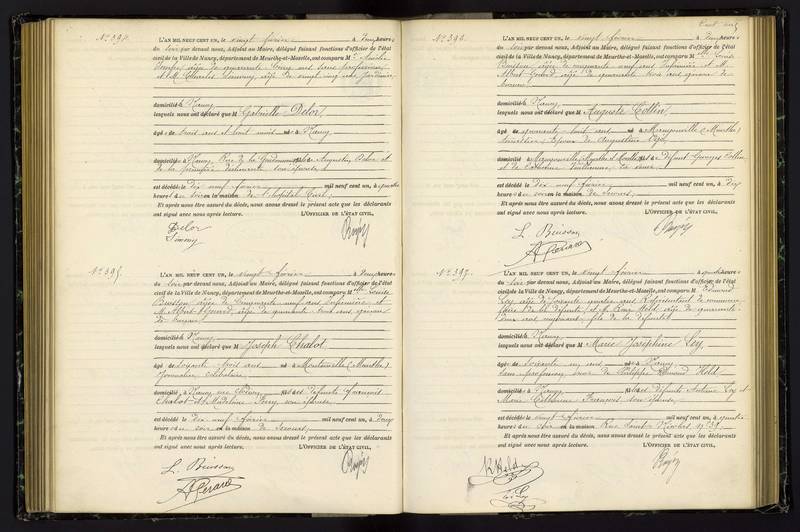 N° 394.
L'AN MIL NEUF CENT UN, le vingt février à heures
du soir par devant nous, Adjoint au Maire, délégué faisant fonctions d'officier de l'état
civil de la Ville de Nancy, département de Meurthe-et-Moselle, ont comparu M
âgée de quarante ans sans profession
et M. Charles Simony, âgé de vingt cinq ans, jardinier
domiciliés à Nancy
lesquels nous ont déclaré que M Gabrielle Delor
âgée de trois ans et huit mois née à Nancy
domiciliée à Nancy, Rue de la Augustin Delor et
de son épouse
est décédée le dix neuf février mil neuf cent un, à quatre
heures du soir en la maison de l'hôpital Civil
Et après nous être assuré du décès, nous avons dressé le présent acte que les déclarants
ont signé avec nous après lecture. L'OFFICIER DE L'ÉTAT CIVIL,
Delor
Simony
N° 395.
L'AN MIL NEUF CENT UN, le vingt février à heures
du soir par devant nous, Adjoint au Maire, délégué faisant fonctions d'officier de l'état
civil de la Ville de Nancy, département de Meurthe-et-Moselle, ont comparu M Louise
Buisson âgée de cinquante neuf ans Infirmière et
M. Albert Gérard, âgé de quarante trois ans garçon
de bureau
domiciliés à Nancy
lesquels nous ont déclaré que M Joseph Chalot
âgé de soixante trois ans né à (Meurthe)
Journalier, célibataire
domicilié à Nancy, rue fils des défunts François
Chalot et Madeleine son épouse
est décédé le dix neuf février mil neuf cent un, à
heures du soir en la maison de Secours
Et après nous être assuré du décès, nous avons dressé le présent acte que les déclarants
ont signé avec nous après lecture. L'OFFICIER DE L'ÉTAT CIVIL,
L. Buisson
A. Gérard
N° 396.
L'AN MIL NEUF CENT UN, le vingt février à heures
du soir par devant nous, Adjoint au Maire, délégué faisant fonctions d'officier de l'état
civil de la Ville de Nancy, département de Meurthe-et-Moselle, ont comparu M Louise
Buisson âgée de cinquante neuf ans Infirmière et M.
Albert Gérard âgé de quarante trois ans garçon de
bureau
domiciliés à Nancy
lesquels nous ont déclaré que M Auguste Collin
âgé de quarante huit ans né à Mangonville (Meurthe)
époux de
domicilié à Mangonville, Meurthe et Moselle, fils de défunt Georges Collin
et de Catherine sa veuve
est décédé le dix neuf février mil neuf cent un, à
heures du soir en la maison de Secours
Et après nous être assuré du décès, nous avons dressé le présent acte que les déclarants
ont signé avec nous après lecture. L'OFFICIER DE L'ÉTAT CIVIL,
L. Buisson
A. Gérard
N° 397.
L'AN MIL NEUF CENT UN, le vingt février à heures
du soir par devant nous, Adjoint au Maire, délégué faisant fonctions d'officier de l'état
civil de la Ville de Nancy, département de Meurthe-et-Moselle, ont comparu M
Ley âgé de soixante quatre ans Représentant de commerce
frère de la défunte, et M. Held, âgé de quarante
deux ans employé fils de la défunte
domiciliés à Nancy
lesquels nous ont déclaré que M Marie Joséphine Ley,
âgée de soixante un ans née à Nancy
sans profession, veuve de Philippe Held
domiciliée à Nancy fille des défunts Antoine Ley et
Marie Catherine François son épouse
est décédée le vingt février mil neuf cent un, à quatre
heures du soir en la maison Rue Nicolas, n° 39
Et après nous être assuré du décès, nous avons dressé le présent acte que les déclarants
ont signé avec nous après lecture. L'OFFICIER DE L'ÉTAT CIVIL,
Held
Ley